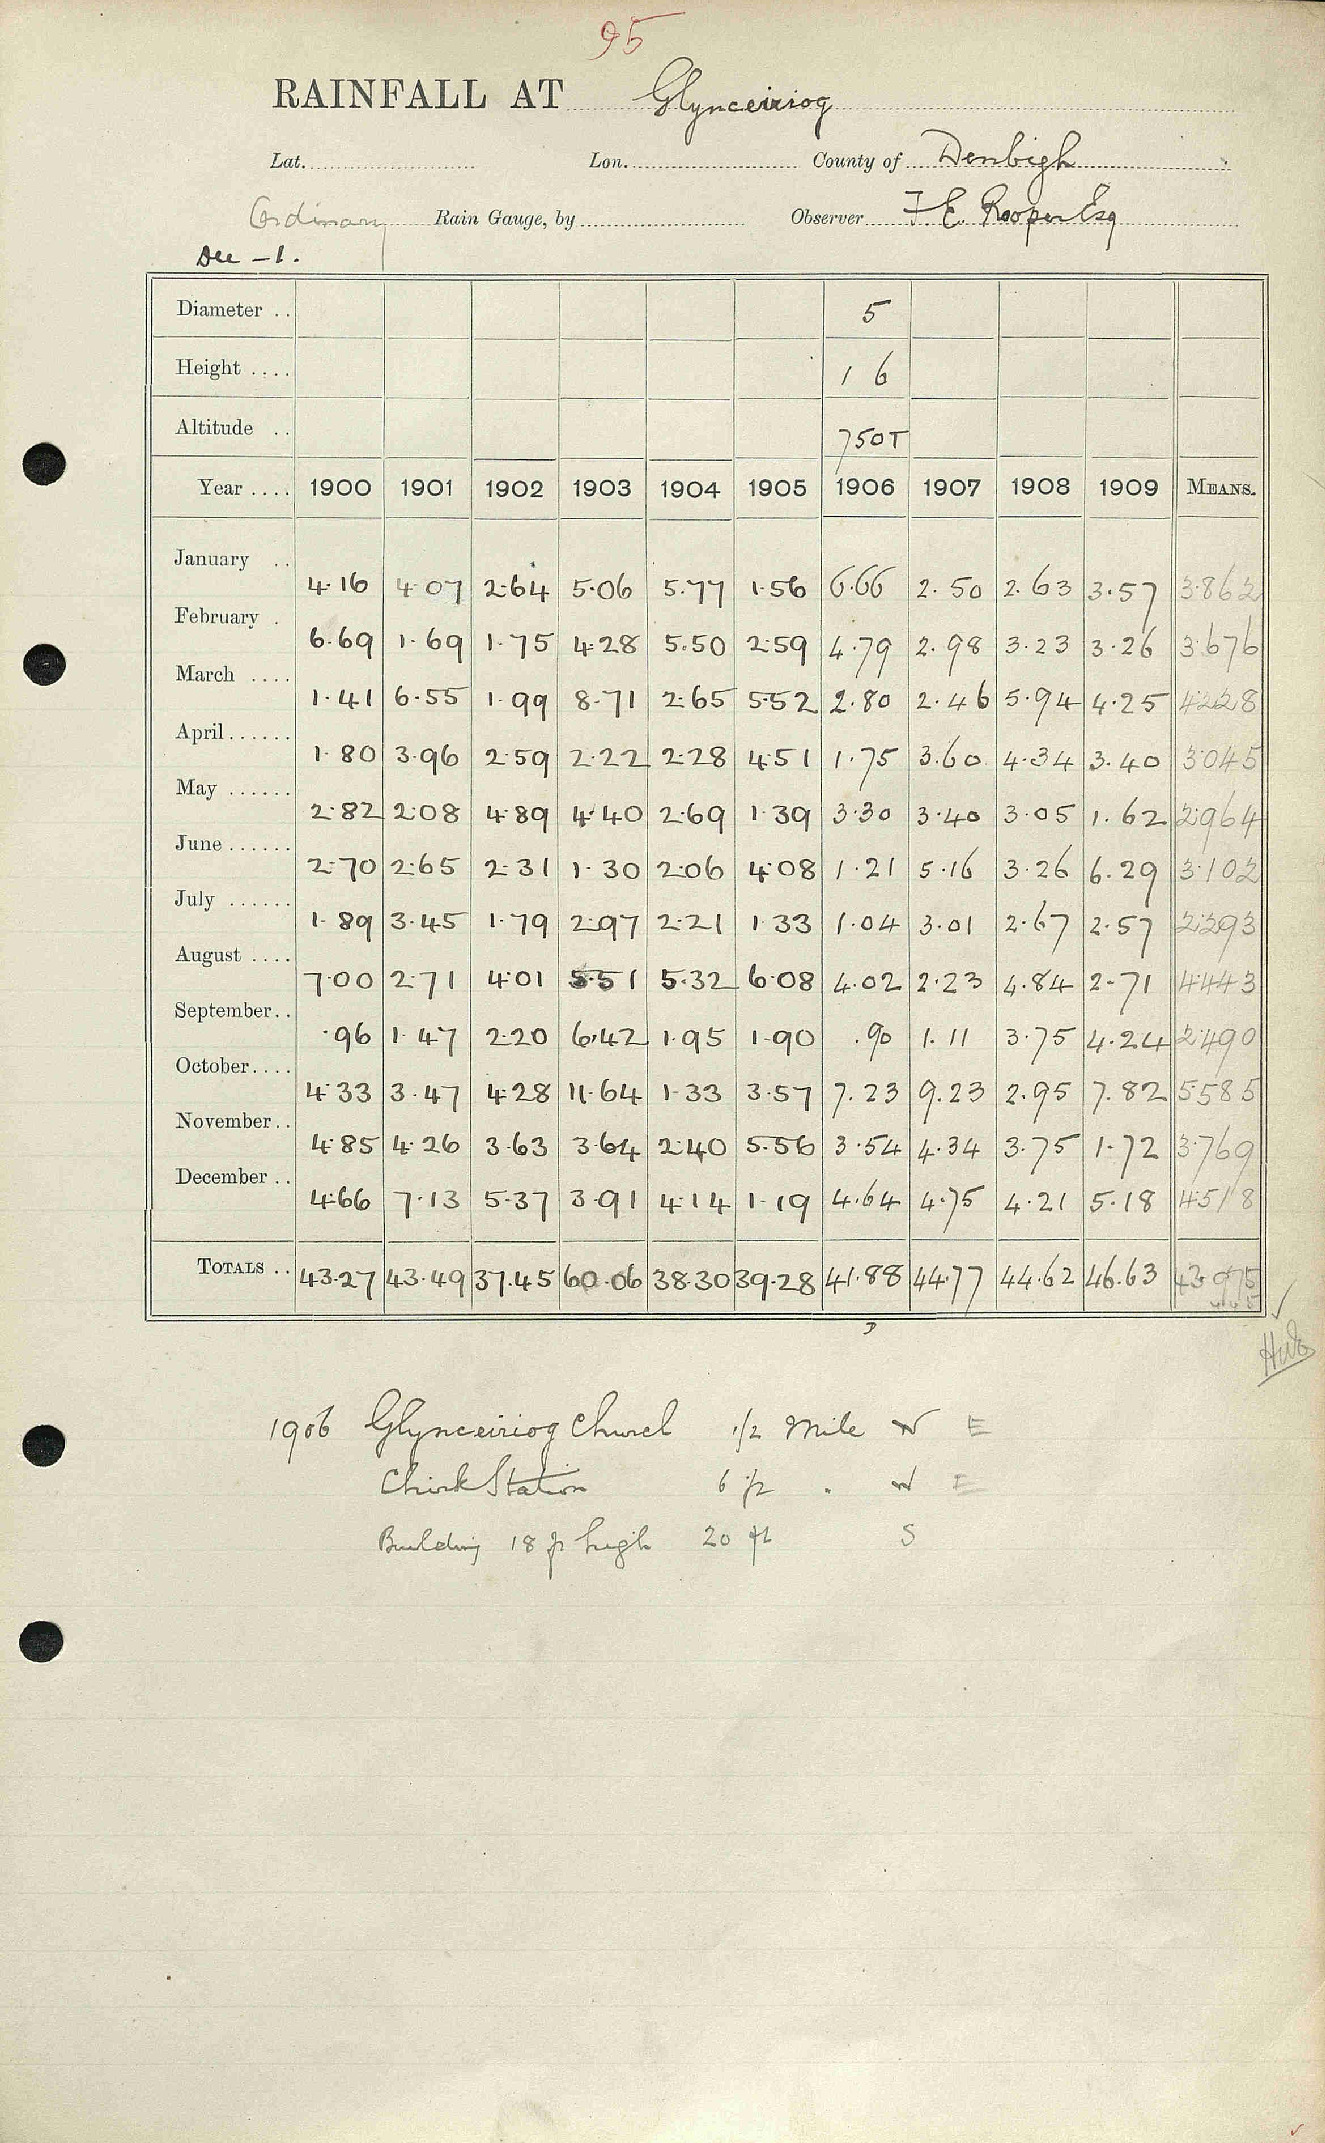 95
RAINFALL AT Glynceiriog
Lat. Lon. County of Denbigh
Ordinary Rain Gauge, by Observer F E Rooper Esq
Dec - 1.
Diameter .. 5
Height .... 1 6
Altitude .. 750T
Year .... 1900 1901 1902 1903 1904 1905 1906 1907 1908 1909 MEANS.
January .. 4.16 4.07 2.64 5.06 5.77 1.56 6.66 2.50 2.63 3.57 3.862
February . 6.69 1.69 1.75 4.28 5.50 2.59 4.79 2.98 3.23 3.26 3.676
March .... 1.41 6.55 1.99 8.71 2.65 5.52 2.80 2.46 5.94 4.25 4.228
April...... 1.80 3.96 2.59 2.22 2.28 4.51 1.75 3.60 4.34 3.40 3.045
May ...... 2.82 2.08 4.89 4.40 2.69 1.39 3.30 3.40 3.05 1.62 2.964
June ...... 2.70 2.65 2.31 1.30 2.06 4.08 1.21 5.16 3.26 6.29 3.102
July ...... 1.89 3.45 1.79 2.97 2.21 1.33 1.04 3.01 2.67 2.57 2.293
August .... 7.00 2.71 4.01 5.51 5.32 6.08 4.02 2.23 4.84 2.71 4.443
September.. .96 1.47 2.20 6.42 1.95 1.90 .90 1.11 3.75 4.24 2.490
October.... 4.33 3.47 4.28 11.64 1.33 3.57 7.23 9.23 2.95 7.82 5.585
November.. 4.85 4.26 3.63 3.64 2.40 5.56 3.54 4.34 3.75 1.72 3.769
December .. 4.66 7.13 5.37 3.91 4.14 1.19 4.64 4.75 4.21 5.18 4.518
TOTALS .. 43.27 43.49 37.45 60.06 38.30 39.28 41.88 44.77 44.62 46.63 43.975
1906 Glynceiriog Church 1/2 Mile W E
Chirk Station 6 1/2 " W E
Building 18 ft high 20 ft S